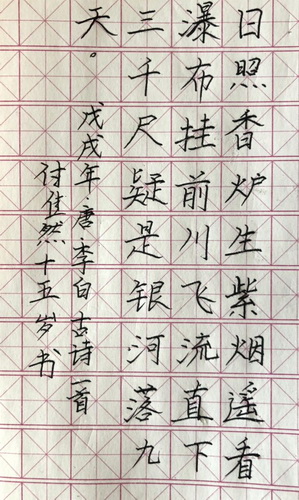 日照香炉生紫烟遥看
瀑布挂前川飞流直下
三千尺疑是银河落九
天。
戊戌年唐李白古诗一首
然十五岁书